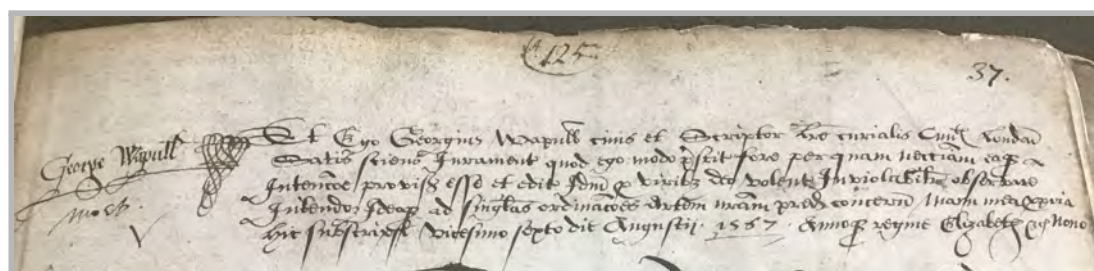 125
37.
George Wapull
mort.
Et Ego Georgius Wapull civis et Scriptor lre curialis Civit London
Satis sciens Jurament quod ego modo prestit fore per quam necciam eaqz
Intencoe provis esse et edit Idm p viribz deo volente Inviolabilit observare
Intendo Ideoqz ad singlas ordinacoes artem nram pred concern Manu mea ppria
hic subscripsi vicesimo sexto die Augustii 1567 Annoqz regine Elizabeth Nono